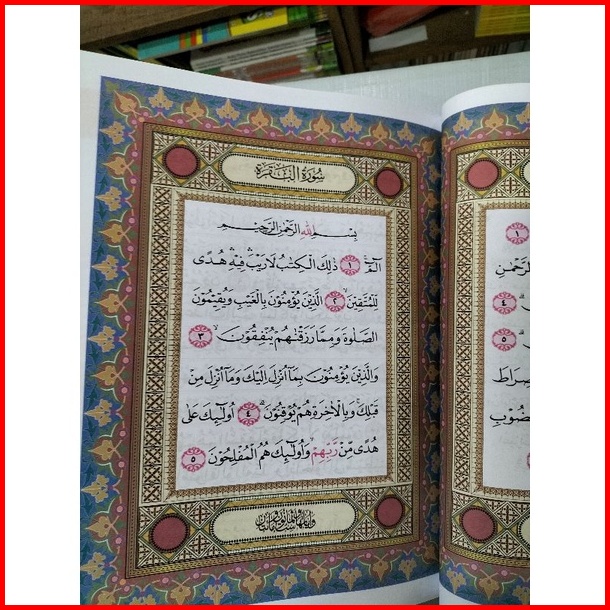 سورة البقرة
بِسْمِ اللهِ الرَّحْمٰنِ الرَّحِيْمِ
الۤمّۤ ۚ ١ ذٰلِكَ الْكِتٰبُ لَا رَيْبَ ۛ فِيْهِ ۛ هُدًى
لِّلْمُتَّقِيْنَ ۙ ٢ الَّذِيْنَ يُؤْمِنُوْنَ بِالْغَيْبِ وَيُقِيْمُوْنَ
الصَّلٰوةَ وَمِمَّا رَزَقْنٰهُمْ يُنْفِقُوْنَ ۙ ٣
وَالَّذِيْنَ يُؤْمِنُوْنَ بِمَآ اُنْزِلَ اِلَيْكَ وَمَآ اُنْزِلَ مِنْ
قَبْلِكَ ۚ وَبِالْاٰخِرَةِ هُمْ يُوْقِنُوْنَ ۗ ٤ اُولٰۤىِٕكَ عَلٰى
هُدًى مِّنْ رَّبِّهِمْ ۙ وَاُولٰۤىِٕكَ هُمُ الْمُفْلِحُوْنَ ٥
١
الرَّحْمٰنِ
٤
٥
صِرَاطَ